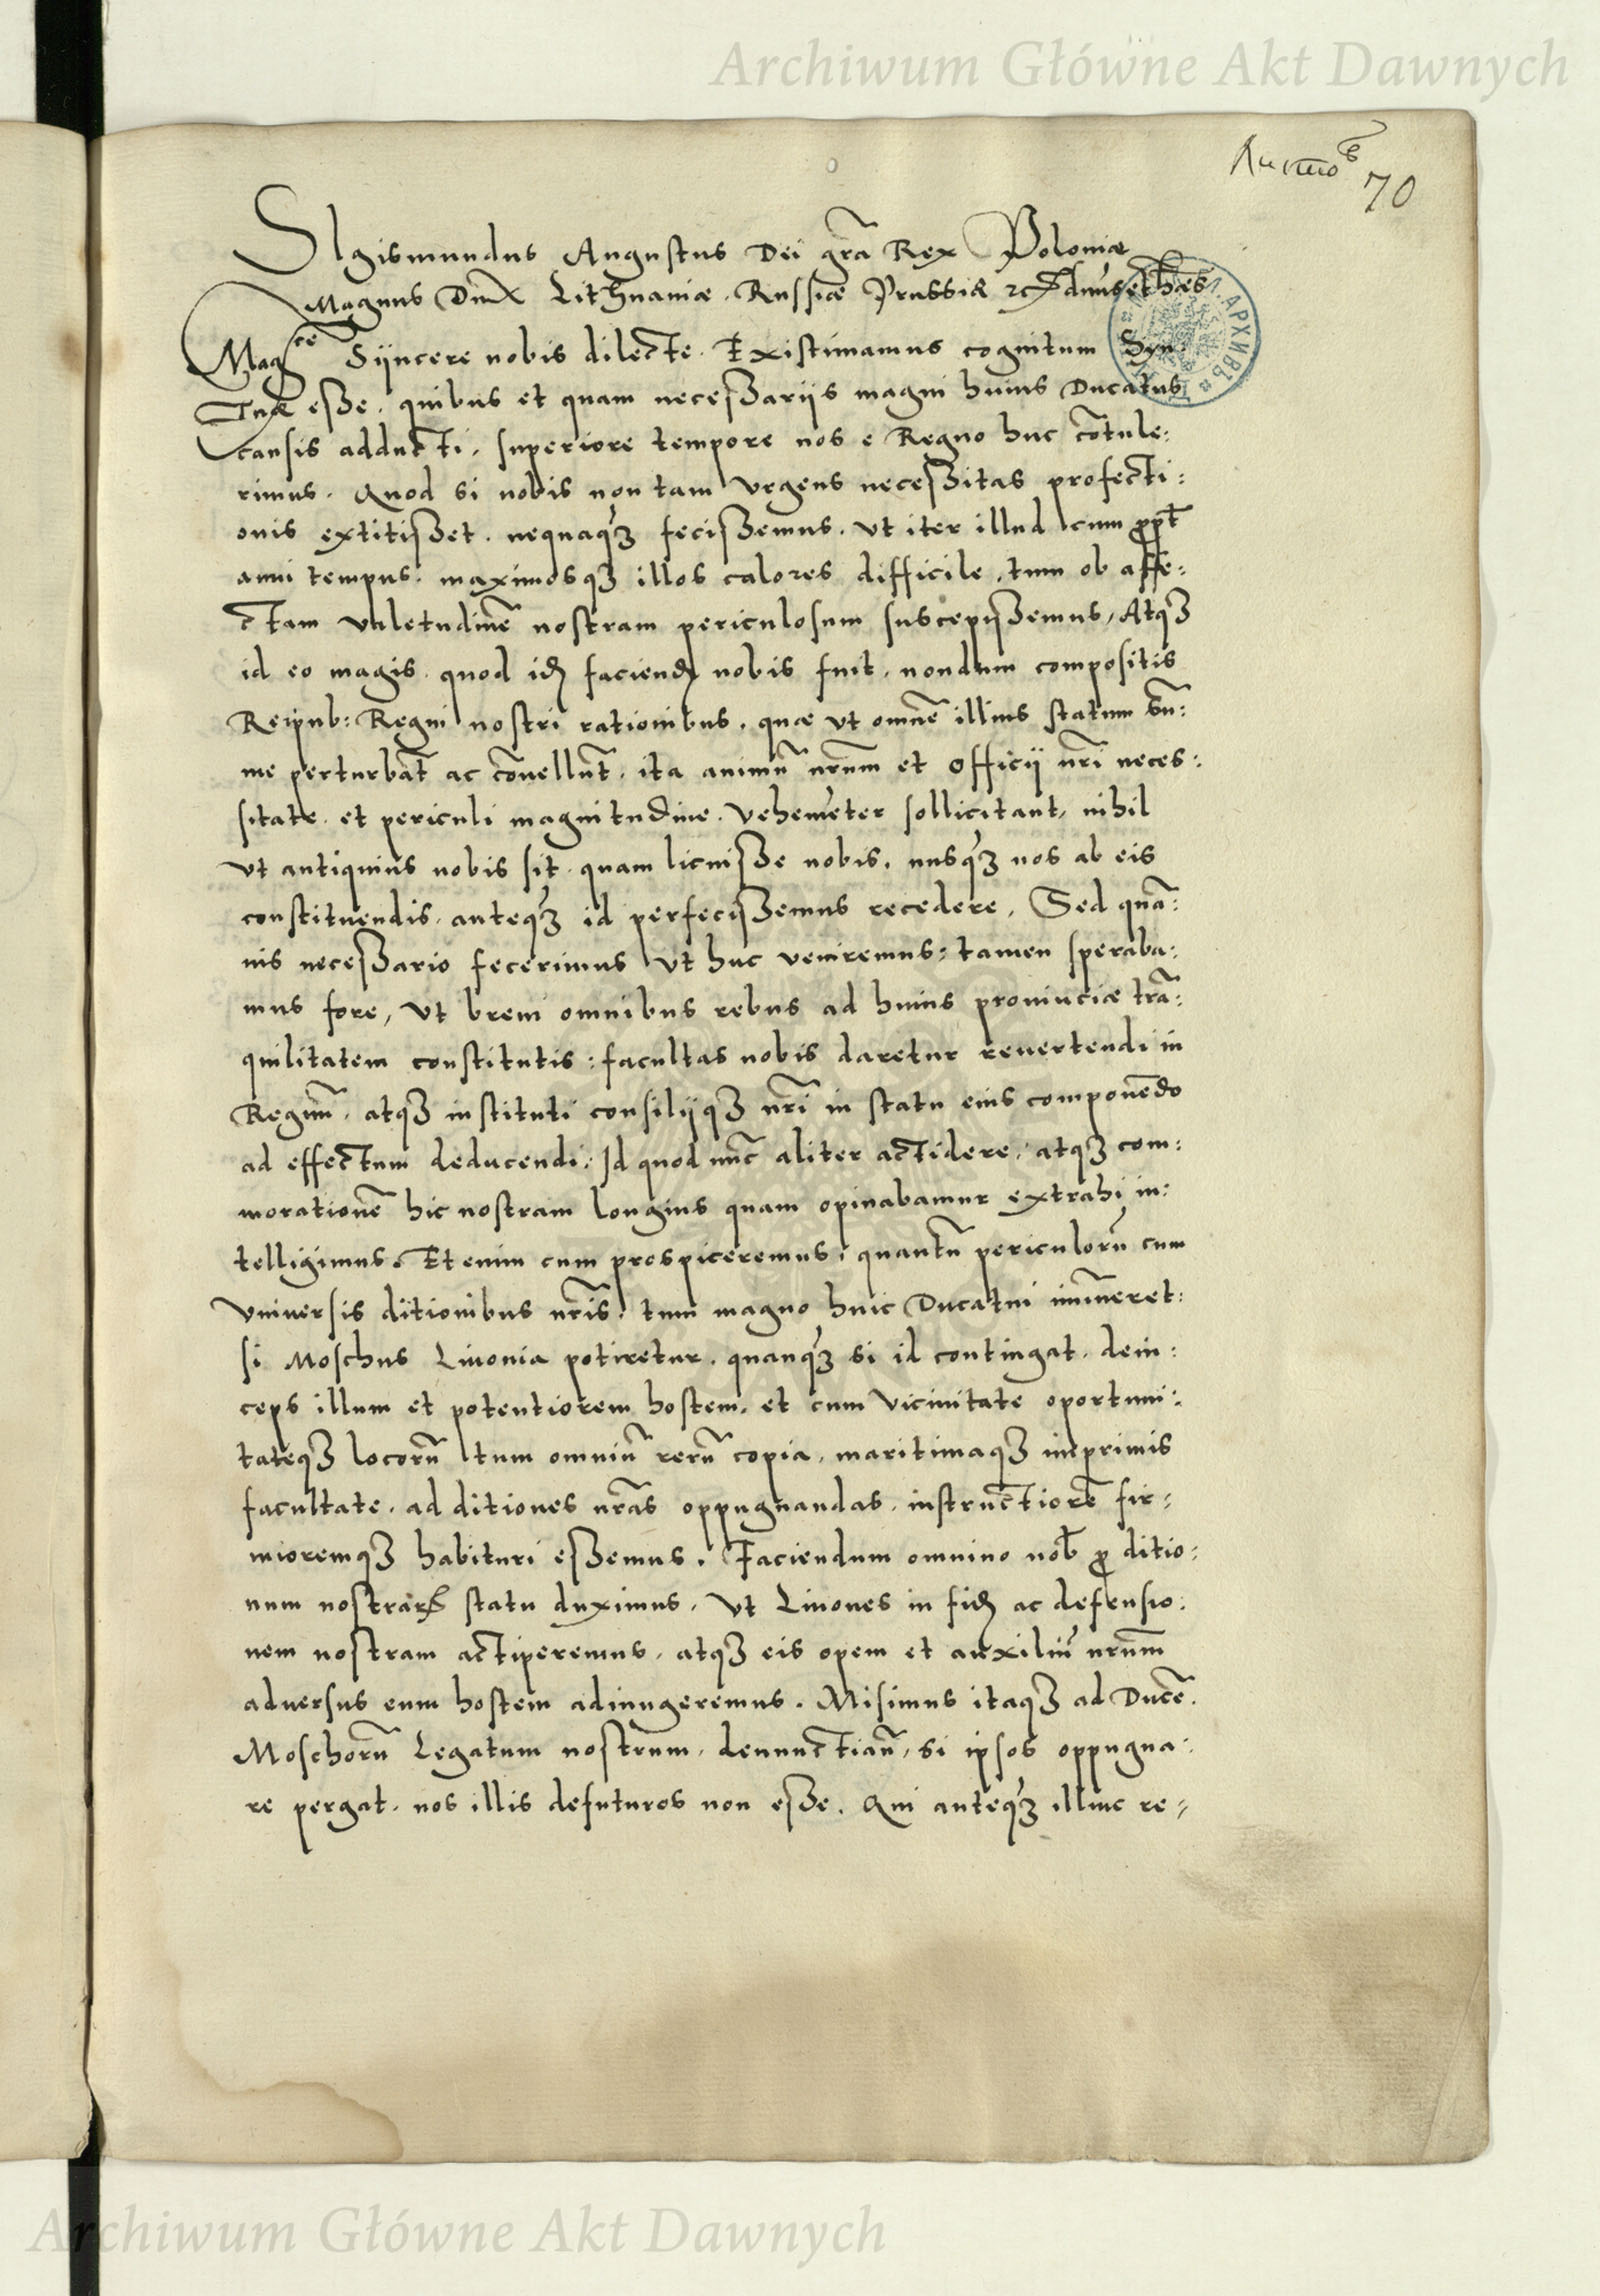 Archiwum Główne Akt Dawnych
70
SIgismundus Augustus Dei grã Rex Poloniæ
Magnus Dux Lithuaniæ. Russiæ Prussiæ
Magce Syncere nobis dilecte. Existimamus cognitum Syn:
Tuæ esse. quibus et quam necessariis magni huius Ducatus
causis adducti, superiore tempore nos e Regno huc cõtule:
rimus. Quod si nobis non tam vrgens necessitas profecti:
onis extitisset. nequaq3 fecissemus. vt iter illud cum ꝓpt
anni tempus. maximosq3 illos calores difficile, tum ob affe:
ctam valetudinẽ nostram periculosum suscepissemus, Atq3
id eo magis. quod id faciend nobis fuit. nondum compositis
Reipub: Regni nostri rationibus. quæ vt omnẽ illius statum sũ:
me perturbãt ac cõuellũt. ita animũ nrũm et officii nrĩ neces:
sitate. et periculi magnitudine. vehemẽter sollicitant, nihil
vt antiquius nobis sit. quam licuisse nobis. nusq3 nos ab eis
constituendis. anteq3 id perfecissemus recedere. Sed quã:
uis necessario fecerimus vt huc veniremus: tamen speraba:
mus fore, vt breui omnibus rebus ad huius prouinciæ trã:
quilitatem constitutis: facultas nobis daretur reuertendi in
Regnũ. atq3 instituti consiliiq3 nrĩ in statu eius componẽdo
ad effectum deducendi: Id quod nũc aliter actidere. atq3 com:
morationẽ hic nostram longius quam opinabamur extrahi in:
telligimus. Etenim cum prospiceremus. quantũ periculorũ cum
vniuersis ditionibus nrĩs. tum magno huic Ducatui imĩneret:
si Moschus Liuonia potiretur. quanq3 si id contingat. dein:
ceps illum et potentiorem hostem. et cum vicinitate oportuni:
tateq3 locorũ tum omniũ rerũ copia, maritimaq3 inprimis
facultate. ad ditiones nrãs oppugnandas. instructiorẽ fir:
mioremq3 habituri essemus. Faciendum omnino nob ꝓ ditio:
num nostrarꝝ statu duximus. vt Liuones in fid ac defensio:
nem nostram actiperemus, atq3 eis opem et auxiliũ nrũm
aduersus eum hostem adiungeremus. Misimus itaq3 ad Ducẽ.
Moschorũ Legatum nostrum, denunctiatũ, si ipsos oppugna:
re pergat. nos illis defuturos non esse. Qui anteq3 illinc re:
Archiwum Główne Akt Dawnych